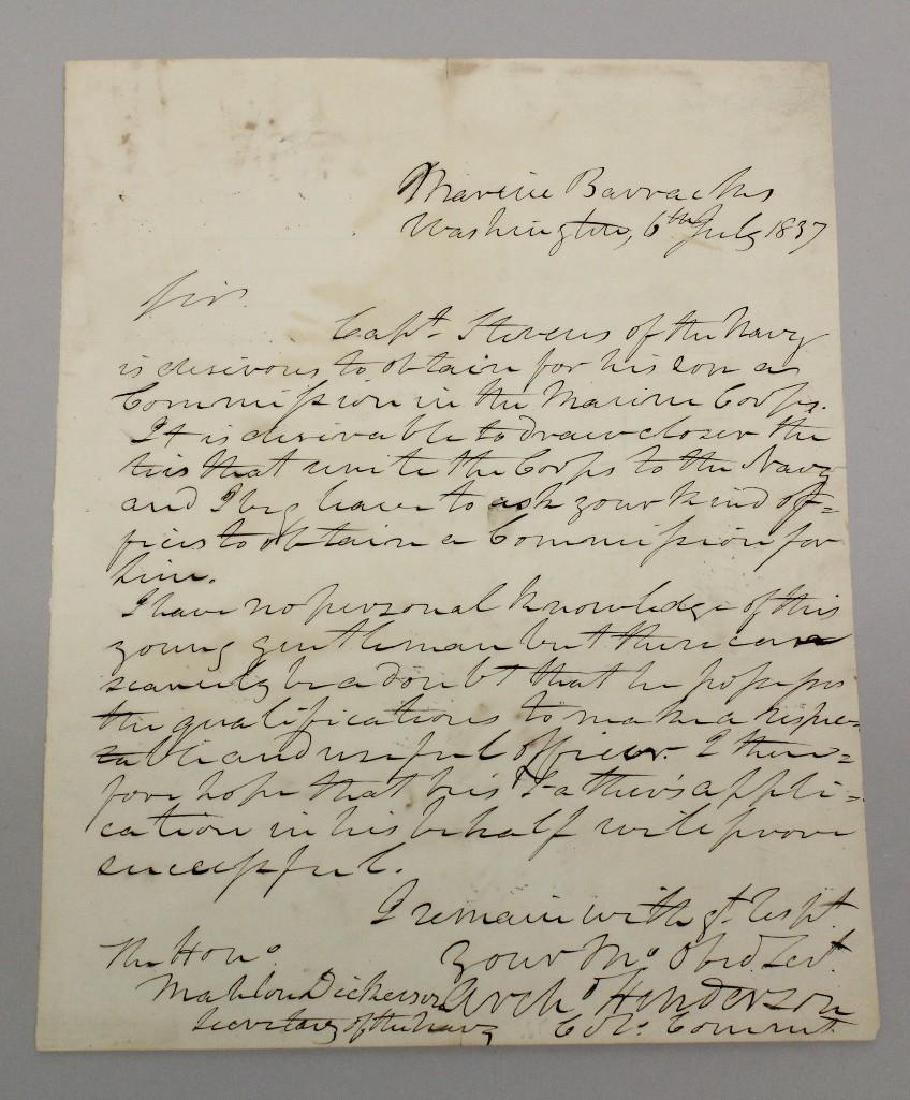 Marine Barracks
Washington, 6th July 1837
Sir.
Capt. Stevens of the Navy
is desirous to obtain for his son a
Commission in the Marine Corps.
It is desirable to draw closer the
ties that unite the Corps to the Navy
and I beg leave to ask your kind of=
fices to obtain a Commission for
him.
I have no personal knowledge of this
young gentleman but there can
scarcely be a doubt that he possesses
the qualifications to make a respec=
table and useful officer. I there=
fore hope that his Father's appli=
cation in his behalf will prove
successful.
I remain with gt. Respt.
your Mo. Obed. Sert.
Archd Henderson
Col. Commt.
The Hono
Mahlon Dickerson
Secretary of the Navy